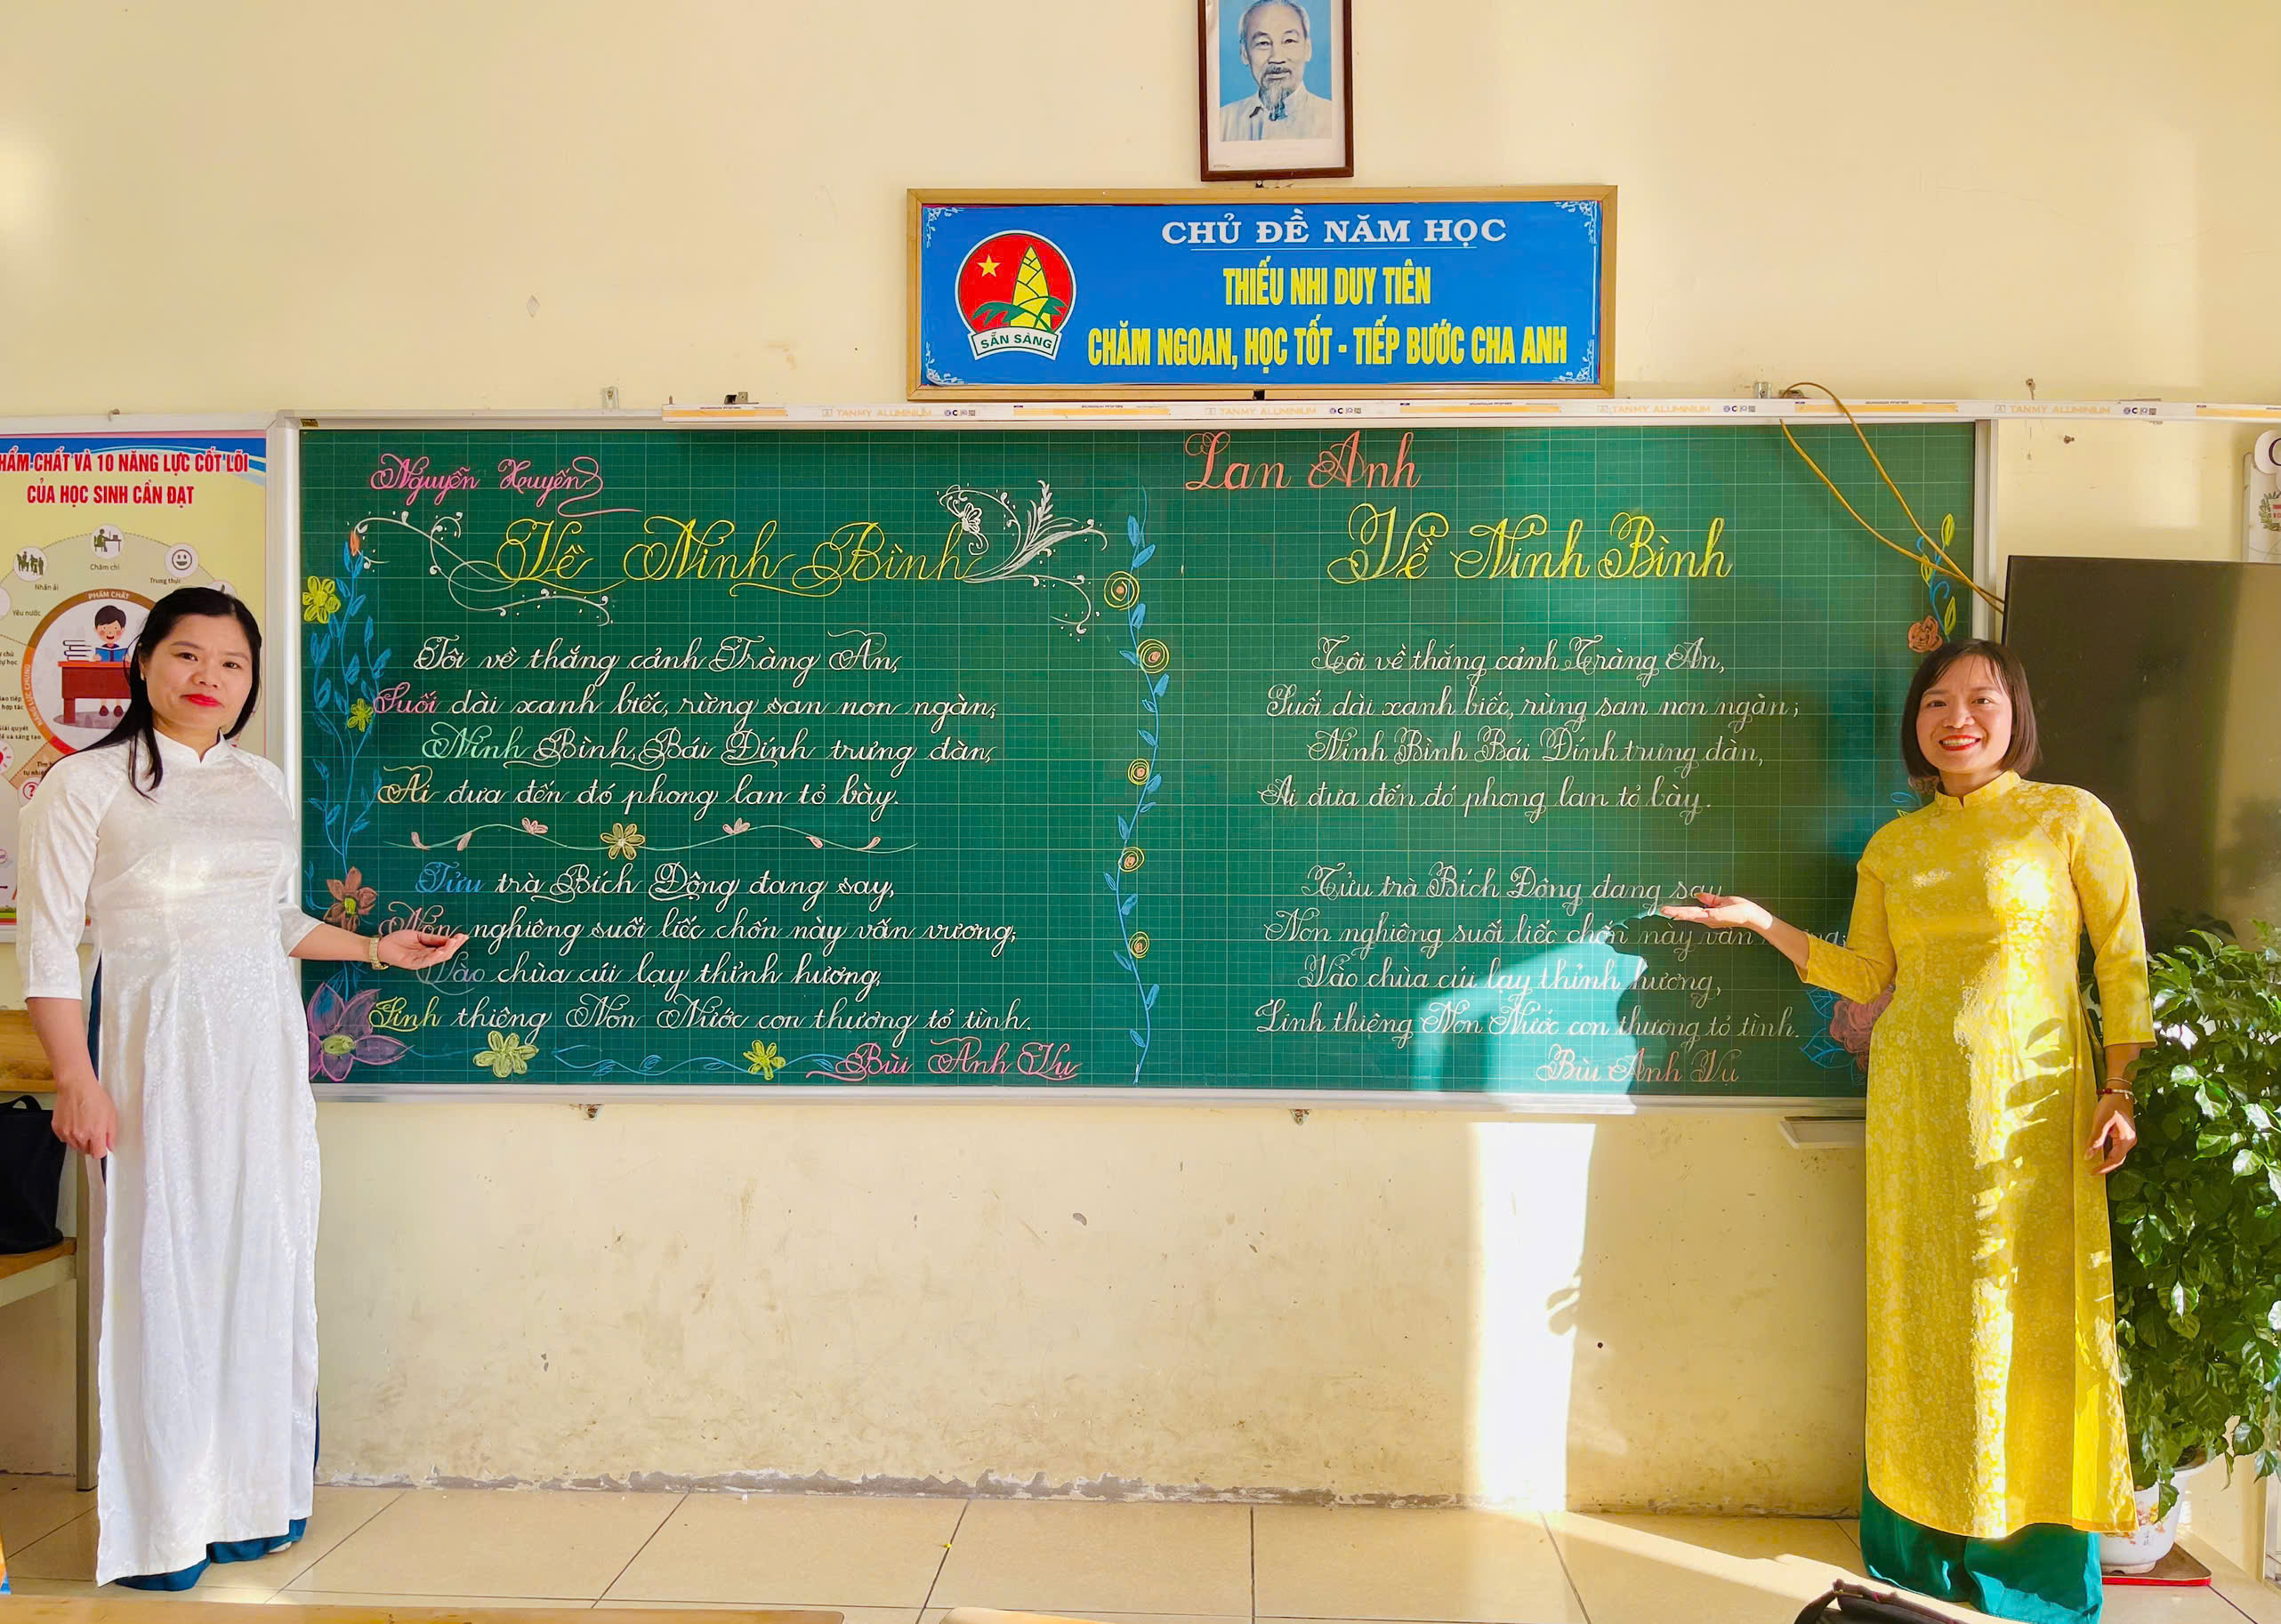 CHỦ ĐỀ NĂM HỌC
THIẾU NHI DUY TIÊN
CHĂM NGOAN, HỌC TỐT - TIẾP BƯỚC CHA ANH
SẴN SÀNG
TANMY ALUMINIUM
TANMY ALUMINIUM
TANMY ALUMINIUM
HẨM CHẤT VÀ 10 NĂNG LỰC CỐT LÕI
CỦA HỌC SINH CẦN ĐẠT
Chăm chỉ
Nhân ái
Trung thực
Yêu nước
PHẨM CHẤT
Nguyễn Xuyến
Về Ninh Bình
Tôi về thắng cảnh Tràng An,
Suối dài xanh biếc, rừng san non ngàn;
Ninh Bình, Bái Đính trưng đàn,
Ai đưa đến đó phong lan tỏ bày.
Tửu trà Bích Động đang say,
Non nghiêng suối liếc chốn này vấn vương;
Vào chùa cúi lạy thỉnh hương,
Linh thiêng Non Nước con thương tỏ tình.
Bùi Anh Vụ
Lan Anh
Về Ninh Bình
Tôi về thắng cảnh Tràng An,
Suối dài xanh biếc, rừng san non ngàn;
Ninh Bình Bái Đính trưng đàn,
Ai đưa đến đó phong lan tỏ bày.
Tửu trà Bích Động đang say
Non nghiêng suối liếc chốn này vấn
Vào chùa cúi lạy thỉnh hương,
Linh thiêng Non Nước con thương tỏ tình.
Bùi Anh Vũ